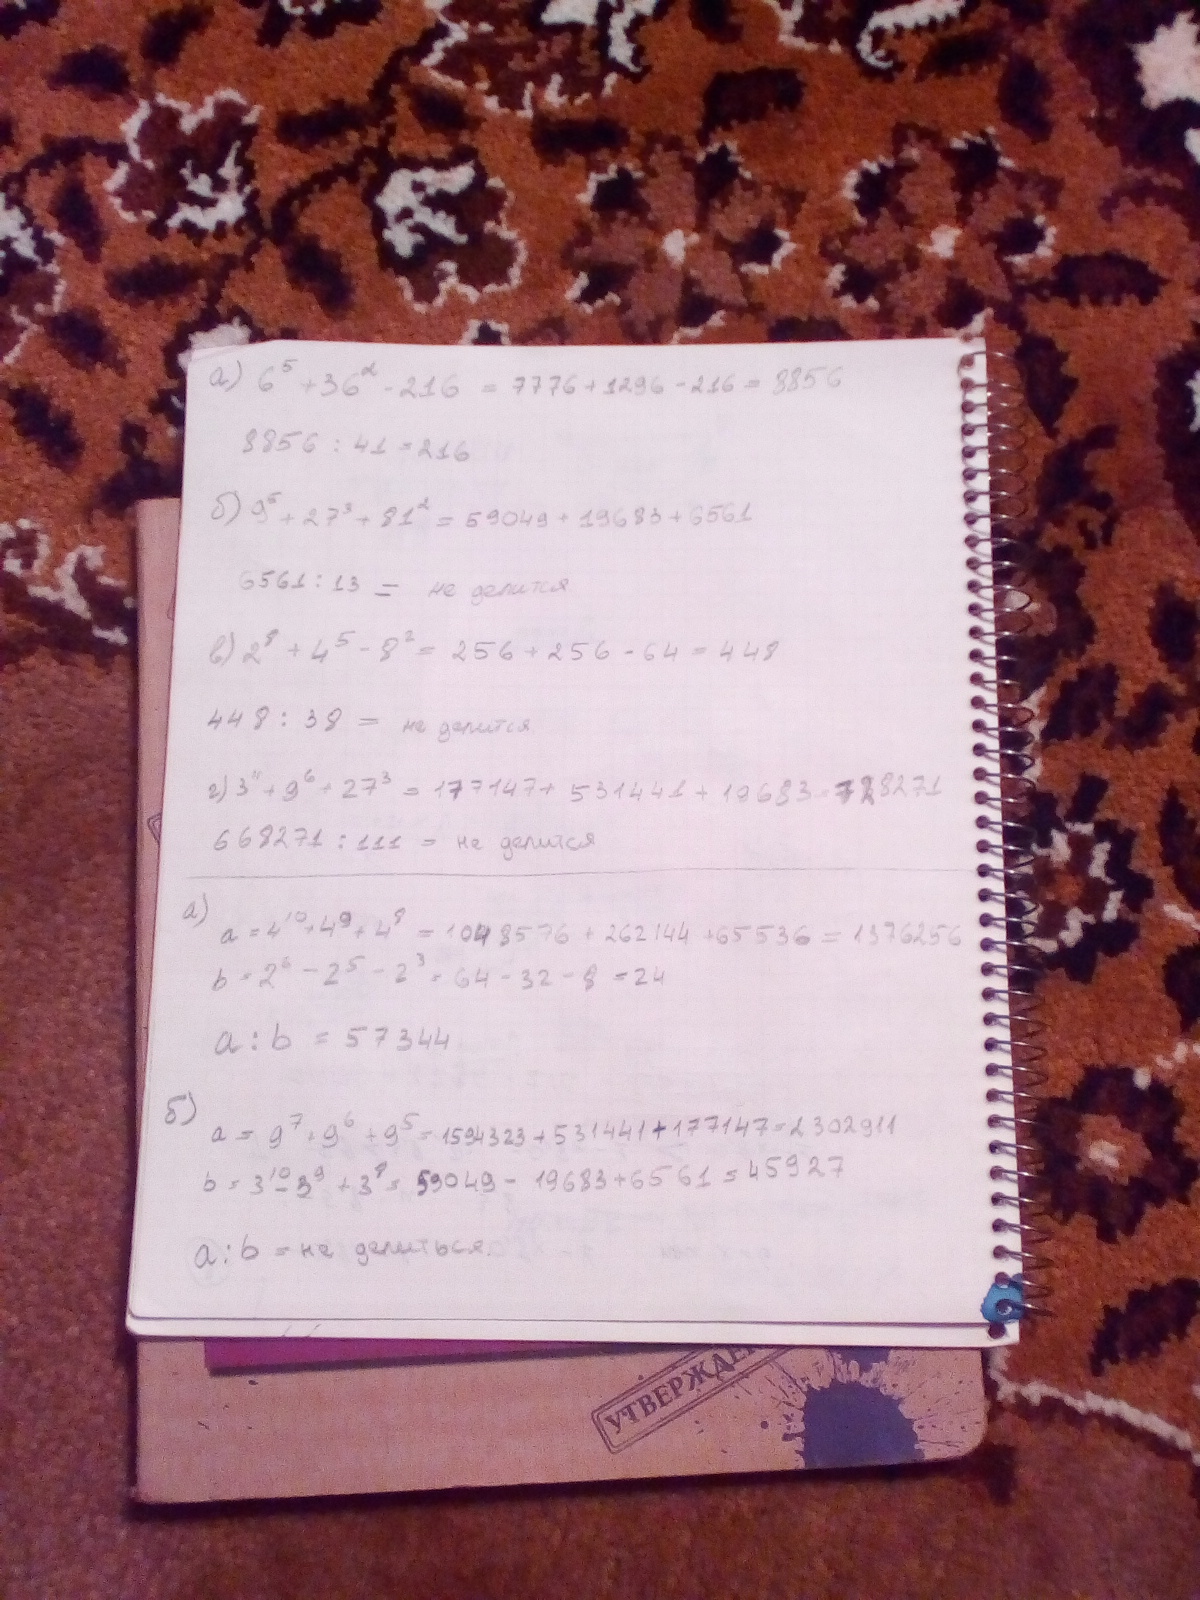 а) 6⁵ + 36² - 216 = 7776 + 1296 - 216 = 8856
8856 : 41 = 216
б) 9⁵ + 27³ + 81² = 59049 + 19683 + 6561
6561 : 13 = не делится
в) 2⁸ + 4⁵ - 8² = 256 + 256 - 64 = 448
448 : 38 = не делится
г) 3¹¹ + 9⁶ + 27³ = 177147 + 531441 + 19683 = 728271
668271 : 111 = не делится
а)
a = 4¹⁰ + 4⁹ + 4⁸ = 1048576 + 262144 + 65536 = 1376256
b = 2⁶ - 2⁵ - 2³ = 64 - 32 - 8 = 24
a : b = 57344
б)
a = 9⁷ + 9⁶ + 9⁵ = 1594323 + 531441 + 177147 = 2302911
b = 3¹⁰ - 3⁹ + 3⁸ = 59049 - 19683 + 6561 = 45927
a : b = не делиться.